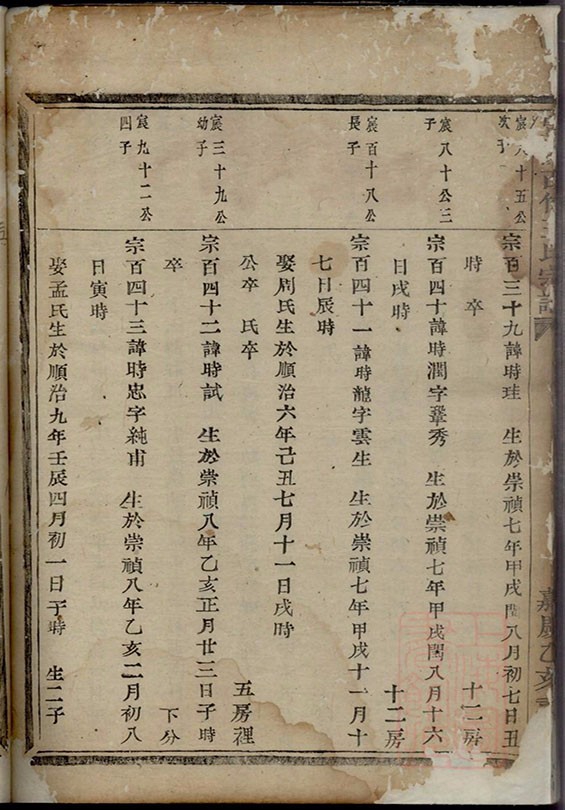 宸八十五公
次子
宗百三十九諱時珪　生於崇禎七年甲戌閏八月初七日丑
時卒　十二房
宸八十公三
子
宗百四十諱時潤字鞏秀　生於崇禎七年甲戌閏八月十六
日戌時　十二房
宸百十八公
長子
宗百四十一諱時龍字雲生　生於崇禎七年甲戌十一月十
七日辰時
娶周氏生於順治六年己丑七月十一日戌時
公卒　氏卒　五房裡
宸三十九公
幼子
宗百四十二諱時試　生於崇禎八年乙亥正月廿三日子時
卒　下分
宸九十二公
四子
宗百四十三諱時忠字純甫　生於崇禎八年乙亥二月初八
日寅時
娶孟氏生於順治九年壬辰四月初一日子時　生二子